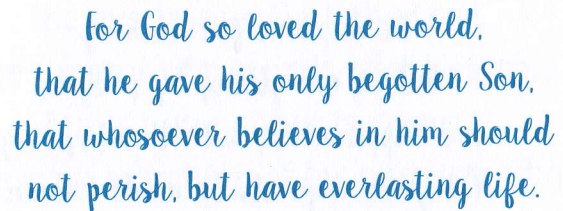 For God so loved the world,
that he gave his only begotten Son,
that whosoever believes in him should
not perish, but have everlasting life.